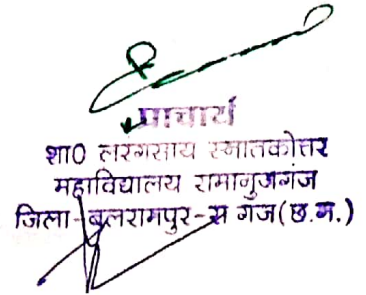 प्राचार्य
शा0 लरंगसाय स्नातकोत्तर
महाविद्यालय रामानुजगंज
जिला-बलरामपुर-स गंज(छ.ग.)